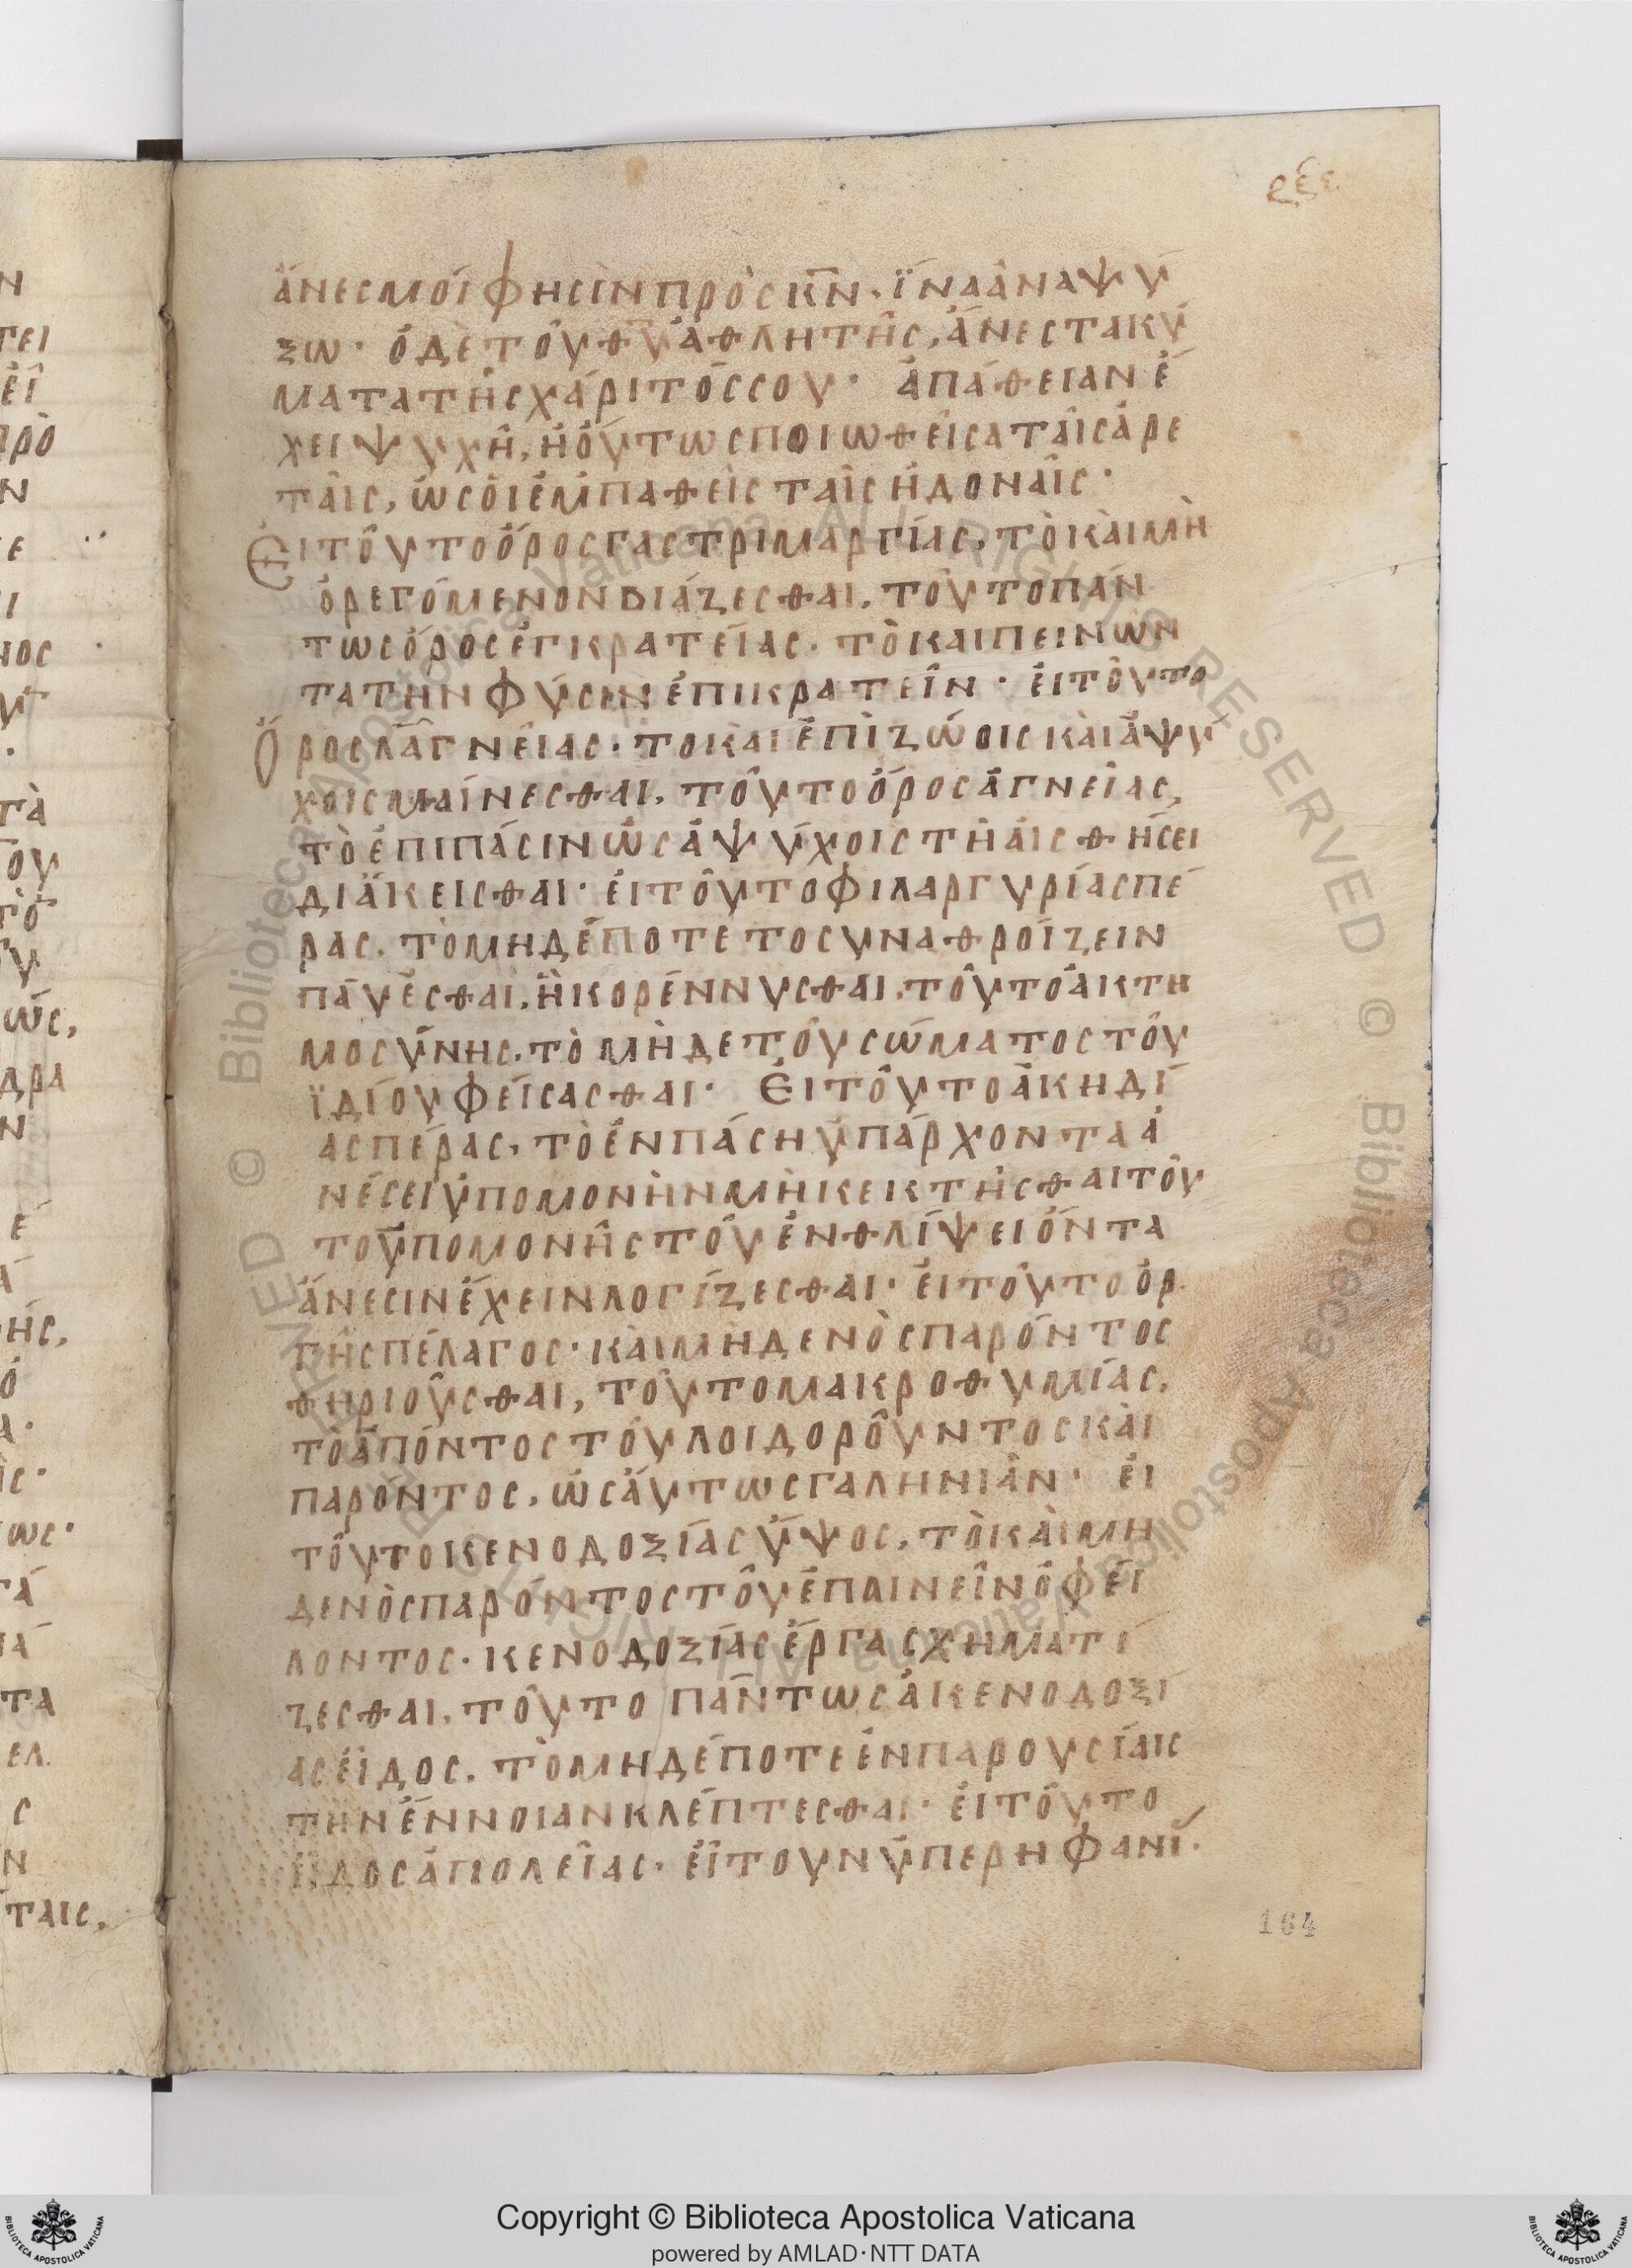 ρξε
ἄνες μοί φησὶν πρὸς κ̅ν̅· ἵνα ἀναψύ
ξω· ὁ δὲ τοῦ θ̅υ̅ ἀθλητῆς, ἄνες τα κύ
ματα τῆς χάριτός σου· ἀπάθειαν ἔ
χει ψυχῆ, ἡ οὕτως ποιωθεῖσα ταῖς ἀρε
ταῖς, ὡς ὁι ἐμπαθεῖς ταῖς ἡδοναῖς·
Ἐι τοῦτο ὅρος γαστριμαργίας, τὸ κὰι μὴ
ὀρεγόμενον βιάζεσθαι, τοῦτο πάν
τως ὅρος ἐγκρατείας· τὸ και πεινῶν
τα την φύσιν ἐπικρατεῖν· ἐι τοῦτο
ὅρος λαγνείας· το κὰι ἐπὶ ζώοις κὰι ἀψύ
χοις μαίνεσθαι, τοῦτο ὅρος ἁγνείας,
τὸ ἐπι πάσιν ὡς ἀψύχοις τῆ ἀισθήσει
διάκεισθαι· ἐι τοῦτο φιλαργυρίας πέ
ρας, τὸ μηδέποτε το συναθροίζειν
παύεσθαι, ἢ κορέννυσθαι, τοῦτο ἀκτη
μοσύνης, τὸ μὴδε τοῦ σώματος τοῦ
ϊδίου φείσασθαι· Ἐι τοῦτο ἀκηδί
ας πέρας, τὸ ἐν πάση ὑπάρχοντα ἀ
νέσει ὑπομονὴν μὴ κεκτῆσθαι τοῦ
το ὑπομονῆς τοῦ ἐν θλίψει ὄντα
ἄνεσιν ἔχειν λογίζεσθαι· ἐι τοῦτο ὀρ
γῆς πέλαγος· κὰι μὴδενὸς παρόντος
θηριοῦσθαι, τοῦτο μακροθυμίας,
τὸ ἀπόντος τοῦ λοιδοροῦντος κὰι
παρόντος, ὡσάυτως γαληνιᾶν· ἐι
τοῦτο κενοδοξίας ὕψος, τὸ κὰι μη
δενὸς παρόντος τοῦ ἐπαινεῖν ὀφεί
λοντος· κενοδοξίας ἔργα σχηματί
ζεσθαι, τοῦτο πάντως ἀκενοδοξί
ας εἶδος, τὸ μηδέποτε ἐν παρουσίαις
την ἔννοιαν κλέπτεσθαι· ἐι τοῦτο
εἶδος ἀπολείας· εἴτουν ὑπερηφανί·
164
Copyright © Biblioteca Apostolica Vaticana
powered by AMLAD·NTT DATA